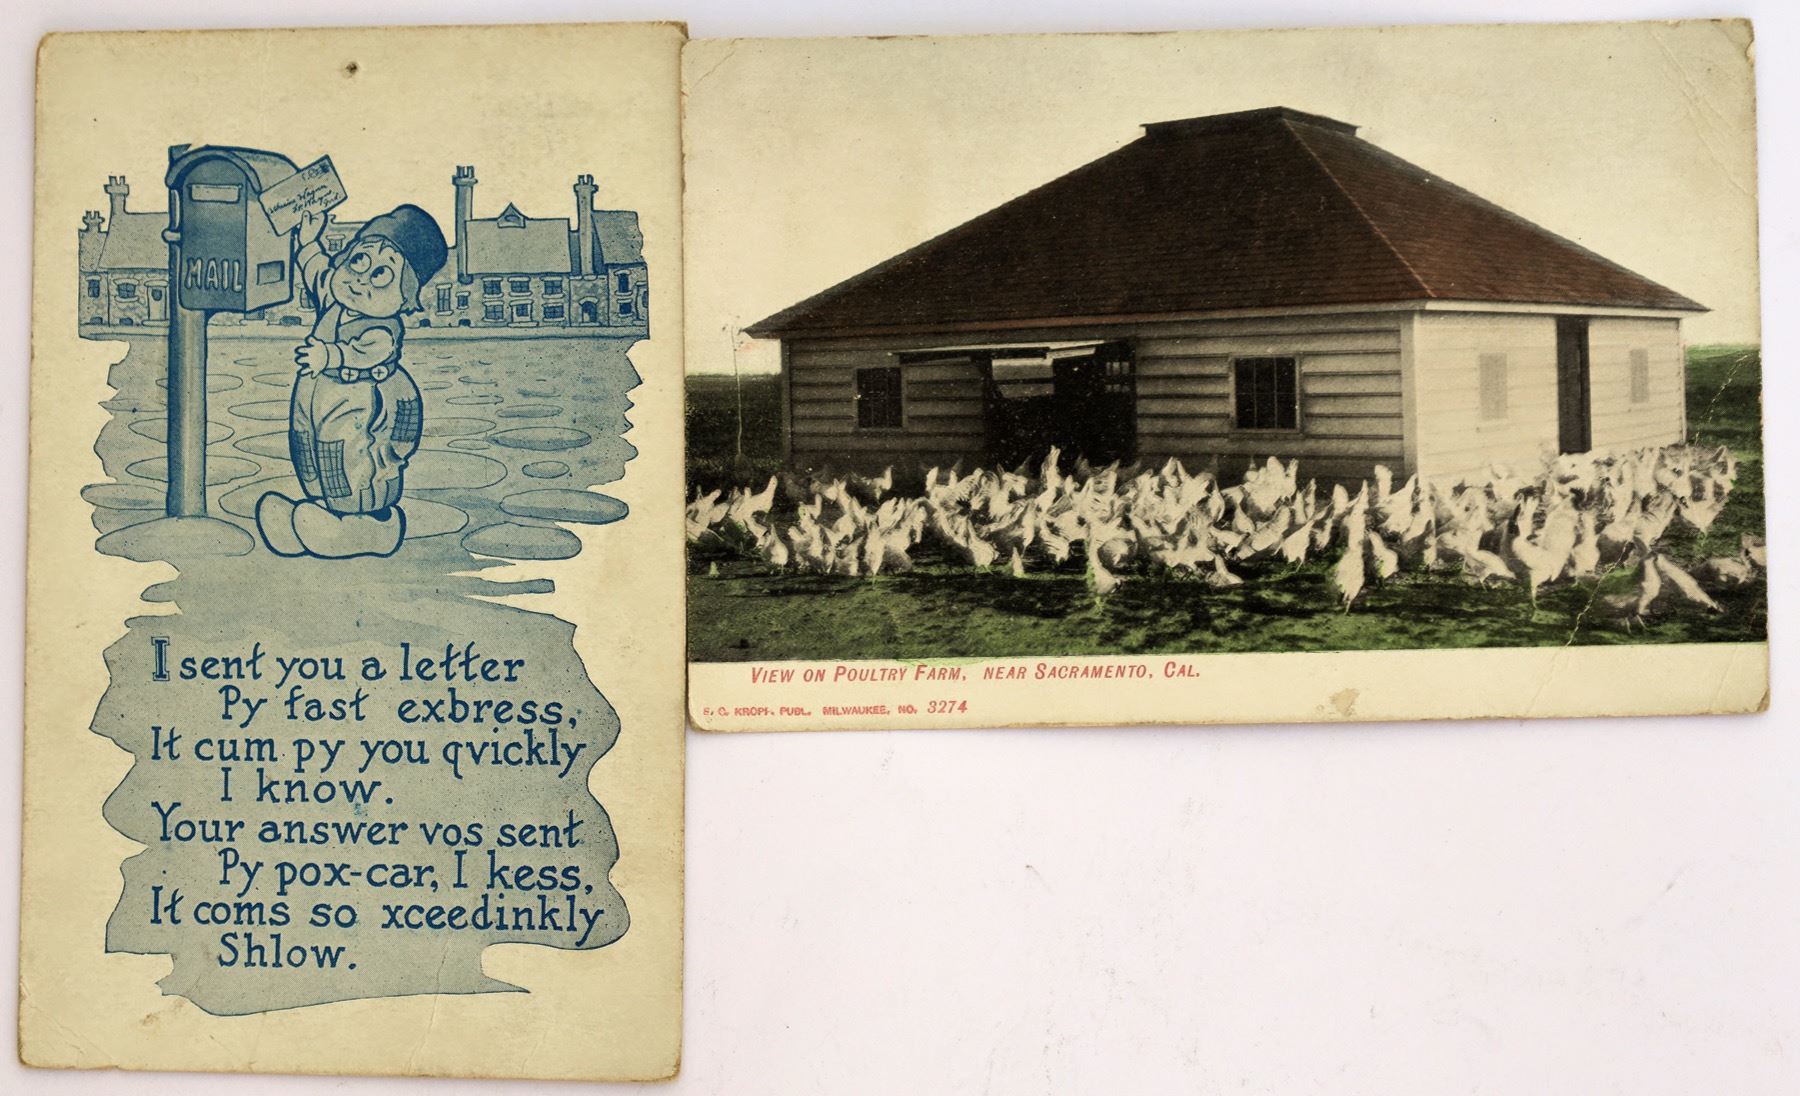 MAIL
I sent you a letter
Py fast exbress,
It cum py you qvickly
I know.
Your answer vos sent
Py pox-car, I kess,
It coms so xceedinkly
Shlow.
VIEW ON POULTRY FARM, NEAR SACRAMENTO, CAL.
E. C. KROPP, PUBL. MILWAUKEE, NO. 3274